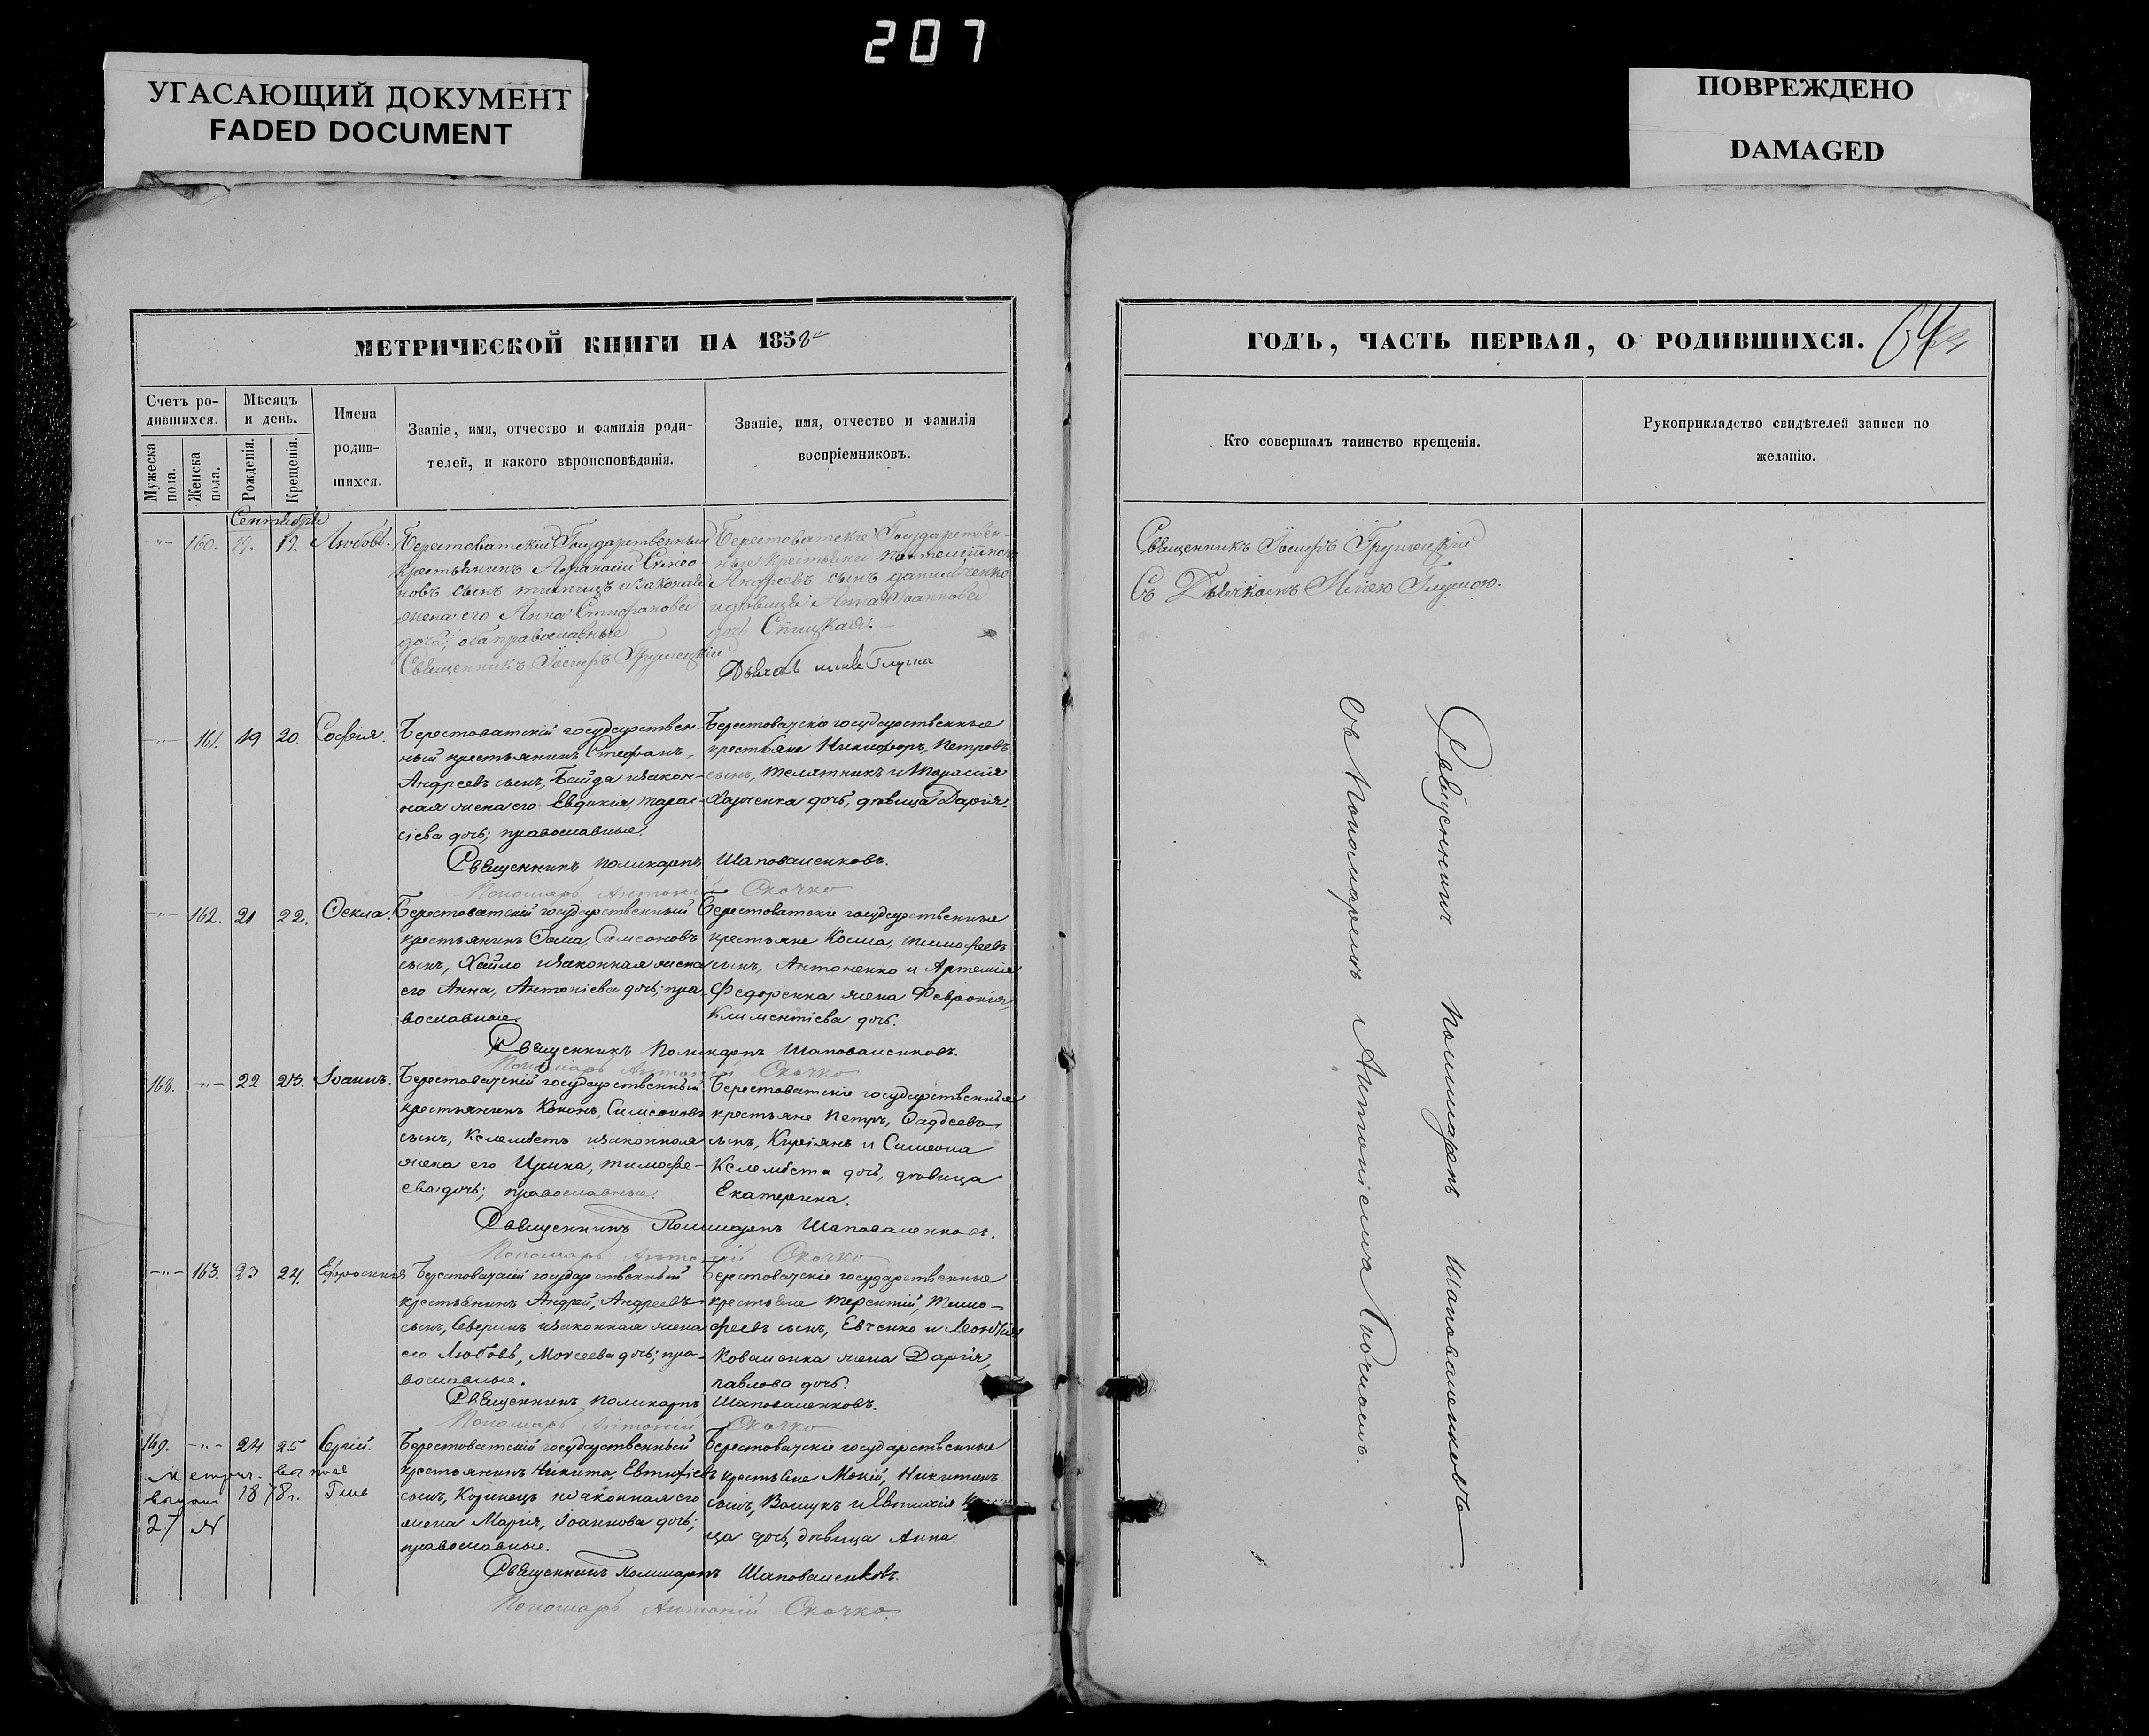 207
УГАСАЮЩИЙ ДОКУМЕНТ
FADED DOCUMENT
ПОВРЕЖДЕНО
DAMAGED
МЕТРИЧЕСКОЙ КНИГИ НА 1858
Счетъ ро-
дившихся.
Мѣсяцъ
и день.
Имена
родив-
шихся.
Мужеска пола.
Женска пола.
Рожденія.
Крещенія.
Званіе, имя, отчество и фамилія роди-
телей, и какого вѣроисповѣданія.
Званіе, имя, отчество и фамилія
воспріемниковъ.
Сентября
160. 19. 19. Любовь.
Берестоватскій Государственный
крестьянинъ Афанасій Симео-
новъ сынъ
жена его Анна Стефанова
дочь, оба православные
Священникъ Іосифъ
Берестоватскіе Государствен-
ные крестьяне
Андреевъ сынъ
и дѣвица Анна Іоаннова
дочь
161. 19 20. Софія.
Берестоватскій государствен-
ный крестьянинъ Стефанъ,
Андреевъ сынъ, Байда и закон-
ная жена его Евдокія, Тарас-
іева дочь; православные.
Берестоватскіе государственные
крестьяне Никифоръ, Петровъ
сынъ, Телятникъ и Тарасія
Харченка дочь, дѣвица Дарія.
Священникъ Поликарпъ Шаповаленковъ.
Пономарь Антоній Скочко
162. 21 22. Ѳекла.
Берестоватскій государственный
крестьянинъ Ѳома, Самсоновъ
сынъ, Хайло и законная жена
его Анна, Антоніева дочь; пра-
вославные.
Берестоватскіе государственные
крестьяне Косма, Тимофеевъ
сынъ, Антоненко и Артемія
Федоренка жена Февронія,
Климентіева дочь.
Священникъ Поликарпъ Шаповаленковъ.
Пономарь Антоній Скочко
168. 22 23. Іоаннъ.
Берестоватскій государственный
крестьянинъ Кононъ, Симеоновъ
сынъ, Келембетъ и законная
жена его Ирина, Тимофе-
ева дочь; православные.
Берестоватскіе государственные
крестьяне Петръ, Ѳаддеевъ
сынъ, Киріянъ и Симеона
Келембета дочь, дѣвица
Екатерина.
Священникъ Поликарпъ Шаповаленковъ.
Пономарь Антоній Скочко
163. 23 24. Ефросинія
Берестоватскій государственный
крестьянинъ Андрей, Андреевъ
сынъ, Северинъ и законная жена
его Любовь, Моисеева дочь; пра-
вославные.
Берестоватскіе государственные
крестьяне Терентій, Тимо-
феевъ сынъ, Евченко и Леонтія
Коваленка жена Дарія,
Павлова дочь.
Священникъ Поликарпъ Шаповаленковъ.
Пономарь Антоній Скочко
169. 24 25 Сергій.
Метрич.
1878 г.
27 №
Берестоватскій государственный
крестьянинъ Никита, Евтихіевъ
сынъ, Коринецъ и законная его
жена Марія, Іоаннова дочь;
православные.
Берестоватскіе государственные
крестьяне Мокій, Никитинъ
сынъ, Ващукъ и Евтихія
ца дочь, дѣвица Анна.
Священникъ Поликарпъ Шаповаленковъ.
Пономарь Антоній Скочко.
ГОДЪ, ЧАСТЬ ПЕРВАЯ, О РОДИВШИХСЯ.
64
Кто совершалъ таинство крещенія.
Рукоприкладство свидѣтелей записи по
желанію.
Священникъ Іосифъ
Съ Дьячкомъ
Священникъ Поликарпъ Шаповаленковъ
съ Пономаремъ Антоніемъ Скочкомъ.